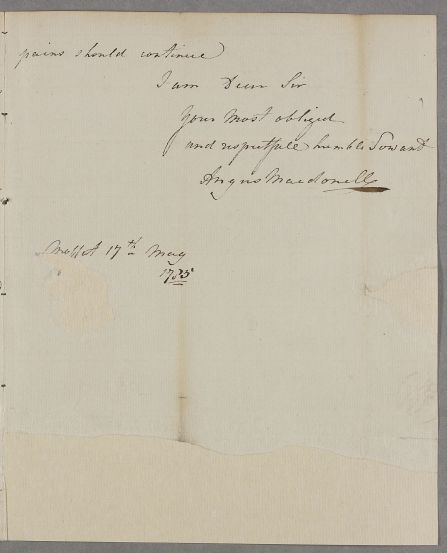 pains should continue
I am Dear Sir
Your most obliged
and respectfull humble Servant
Angus Macdonell
Moffat 17th May